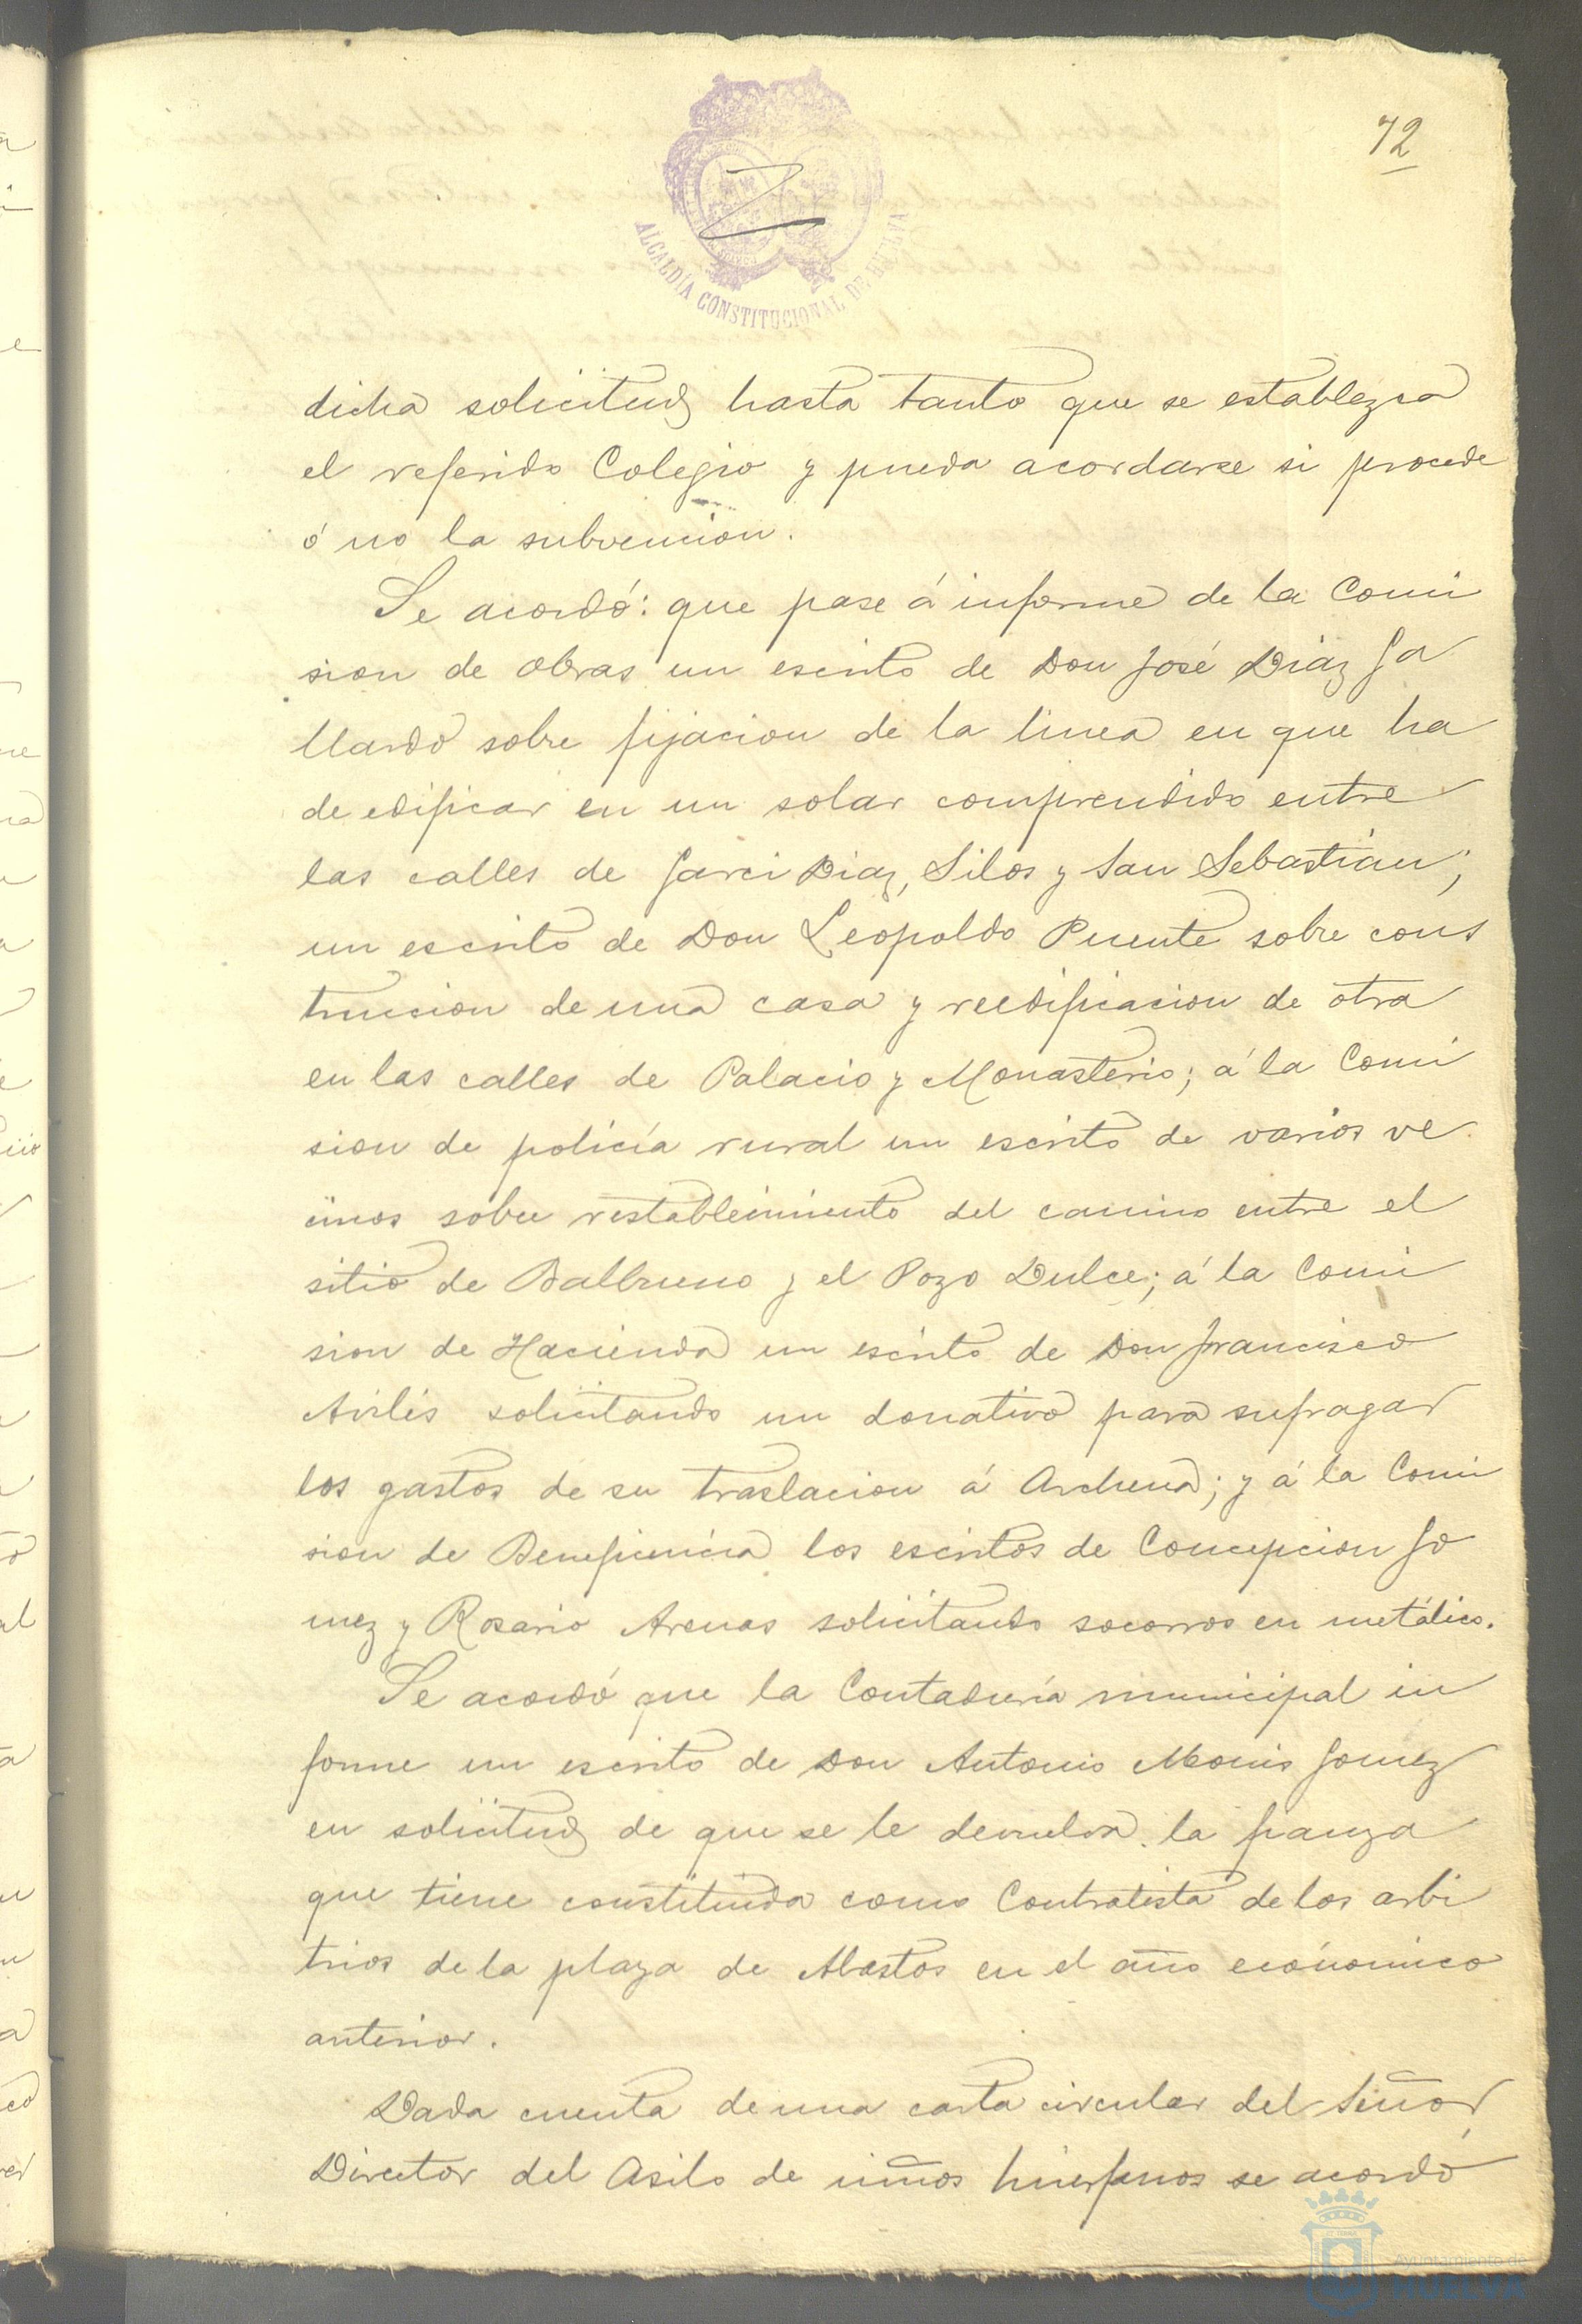 72
ALCALDÍA CONSTITUCIONAL DE HUELVA
dicha solicitud hasta tanto que se establezca
el referido Colegio y pueda acordarse si procede
ó no la subvencion.
Se acordó: que pase á informe de la Comi
sion de obras un escrito de Don José Diaz Ga
llardo sobre fijacion de la linea en que ha
de edificar en un solar comprendido entre
las calles de Garci Diaz, Silos y San Sebastián;
un escrito de Don Leopoldo Puente sobre cons
truccion de una casa y reedificacion de otra
en las calles de Palacio y Monasterio; á la Comi
sion de policía rural un escrito de varios ve
cinos sobre restablecimiento del camino entre el
sitio de Balbueno y el Pozo Dulce; á la Comi
sion de Hacienda un escrito de Don Francisco
Avilés solicitando un donativo para sufragar
los gastos de su traslacion á Archena; y á la Comi
sion de Beneficencia los escritos de Concepcion Go
mez y Rosario Arenas solicitando socorros en metálico.
Se acordó que la Contaduría municipal in
forme un escrito de Don Antonio Monis Gomez
en solicitud de que se le devuelva la fianza
que tiene constituida como Contratista de los arbi
trios de la plaza de Abastos en el año económico
anterior.
Dada cuenta de una carta circular del Señor
Director del Asilo de niños huerfanos se acordó
Ayuntamiento de
HUELVA